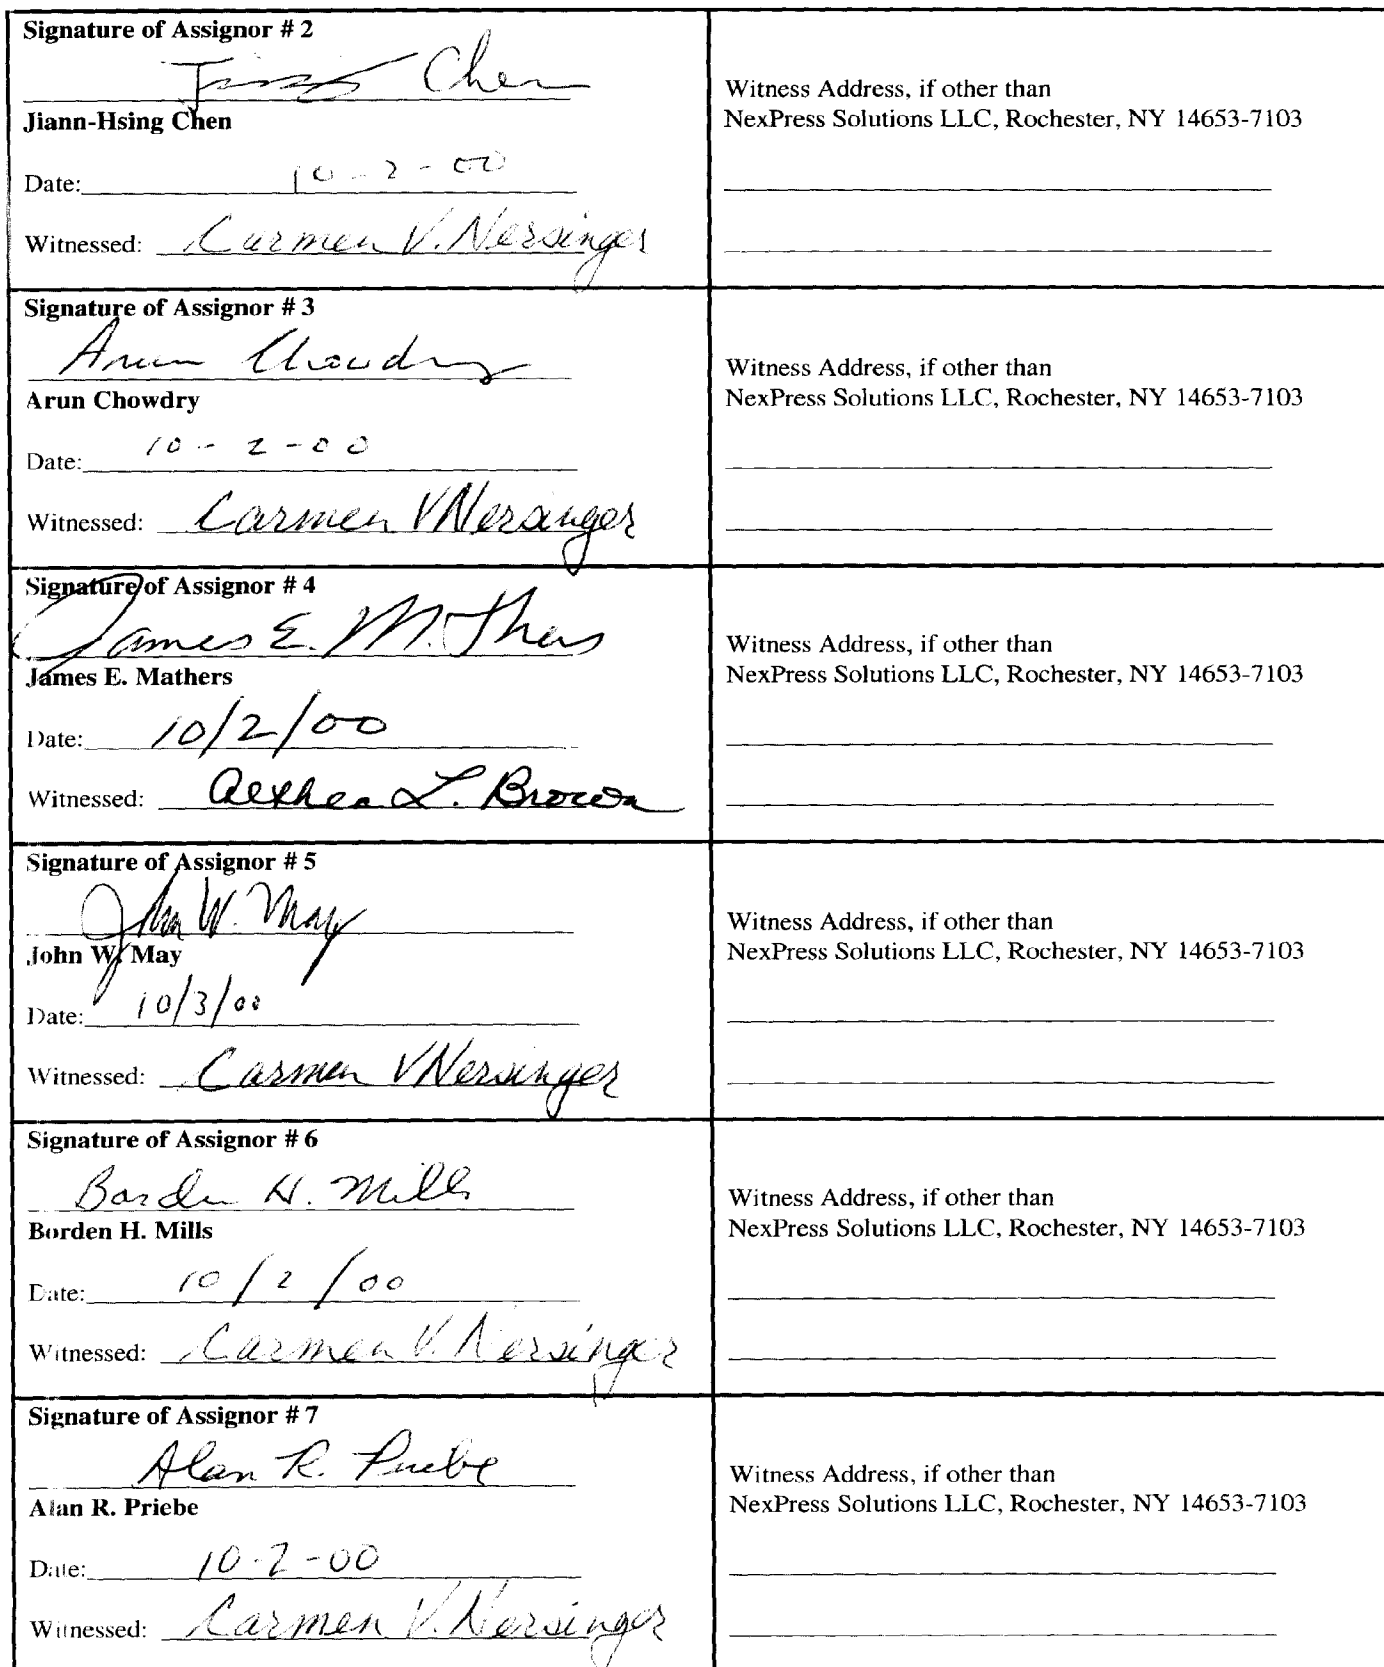 Signature of Assignor # 2
Chen
Jiann-Hsing Chen
Date: 10-2-00
Witnessed: Carmen V. Nersinger
Witness Address, if other than
NexPress Solutions LLC, Rochester, NY 14653-7103
Signature of Assignor # 3
Arun Chowdry
Arun Chowdry
Date: 10-2-00
Witnessed: Carmen V Nersinger
Witness Address, if other than
NexPress Solutions LLC, Rochester, NY 14653-7103
Signature of Assignor # 4
James E. Mathers
James E. Mathers
Date: 10/2/00
Witnessed: Althea L. Brown
Witness Address, if other than
NexPress Solutions LLC, Rochester, NY 14653-7103
Signature of Assignor # 5
John W. May
John W. May
Date: 10/3/00
Witnessed: Carmen V Nersinger
Witness Address, if other than
NexPress Solutions LLC, Rochester, NY 14653-7103
Signature of Assignor # 6
Borden H. Mills
Borden H. Mills
Date: 10/2/00
Witnessed: Carmen V. Nersinger
Witness Address, if other than
NexPress Solutions LLC, Rochester, NY 14653-7103
Signature of Assignor # 7
Alan R. Priebe
Alan R. Priebe
Date: 10-2-00
Witnessed: Carmen V. Nersinger
Witness Address, if other than
NexPress Solutions LLC, Rochester, NY 14653-7103